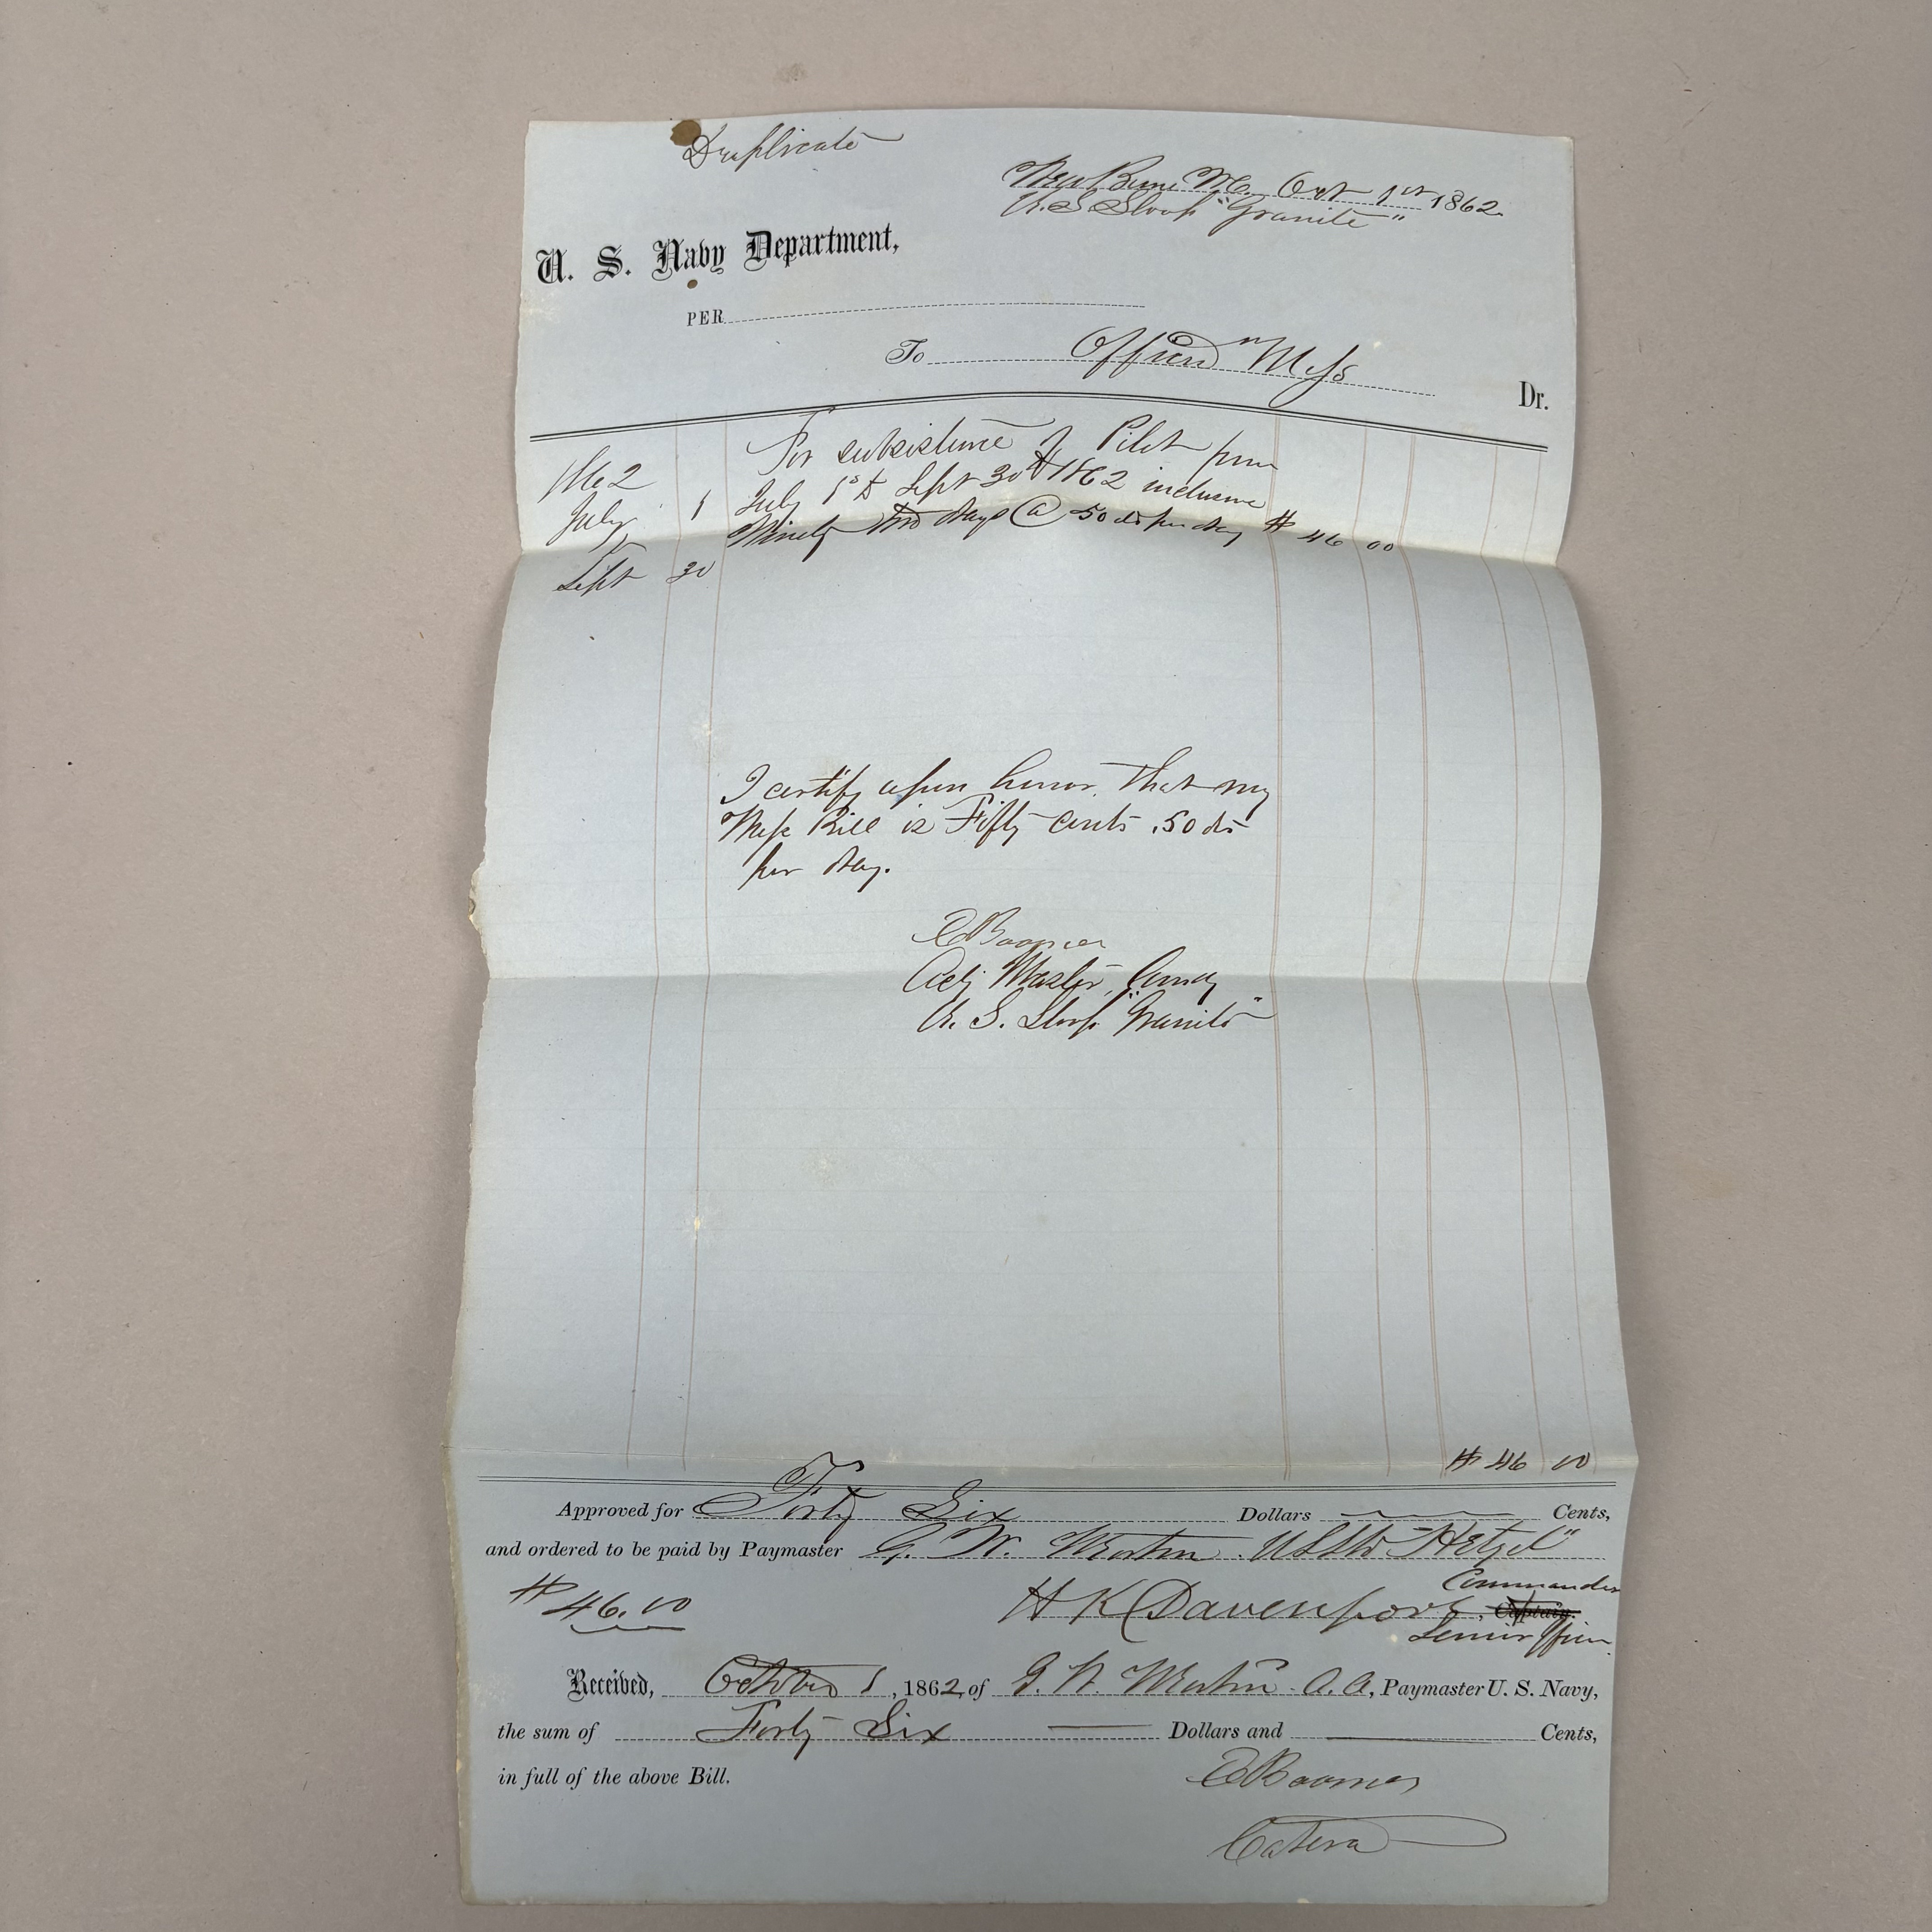 Duplicate
New Berne N.C. Oct 1st 1862
U.S. Sloop "Granite"
U. S. Navy Department,
PER
To Officers Mess Dr.
1862 For subsistence of Pilot from
July 1 July 1st to Sept 30th 1862 inclusive
Ninety two days @ 50 cts per day $ 46 00
Sept 30
I certify upon honor, that my
Mess Bill is Fifty cents .50 cts
per day.
E Boomer
Actg Master, Comdg
U. S. Sloop "Granite"
$ 46 00
Approved for Forty Six Dollars Cents,
and ordered to be paid by Paymaster G. W. Martin. USStr "Hetzel"
Commander
$ 46.00 H K Davenport, Captain.
Senior Officer.
Received, October 1, 1862, of G. W. Martin A. A. Paymaster U. S. Navy,
the sum of Forty Six Dollars and Cents,
in full of the above Bill.
E Boomer
Caterer